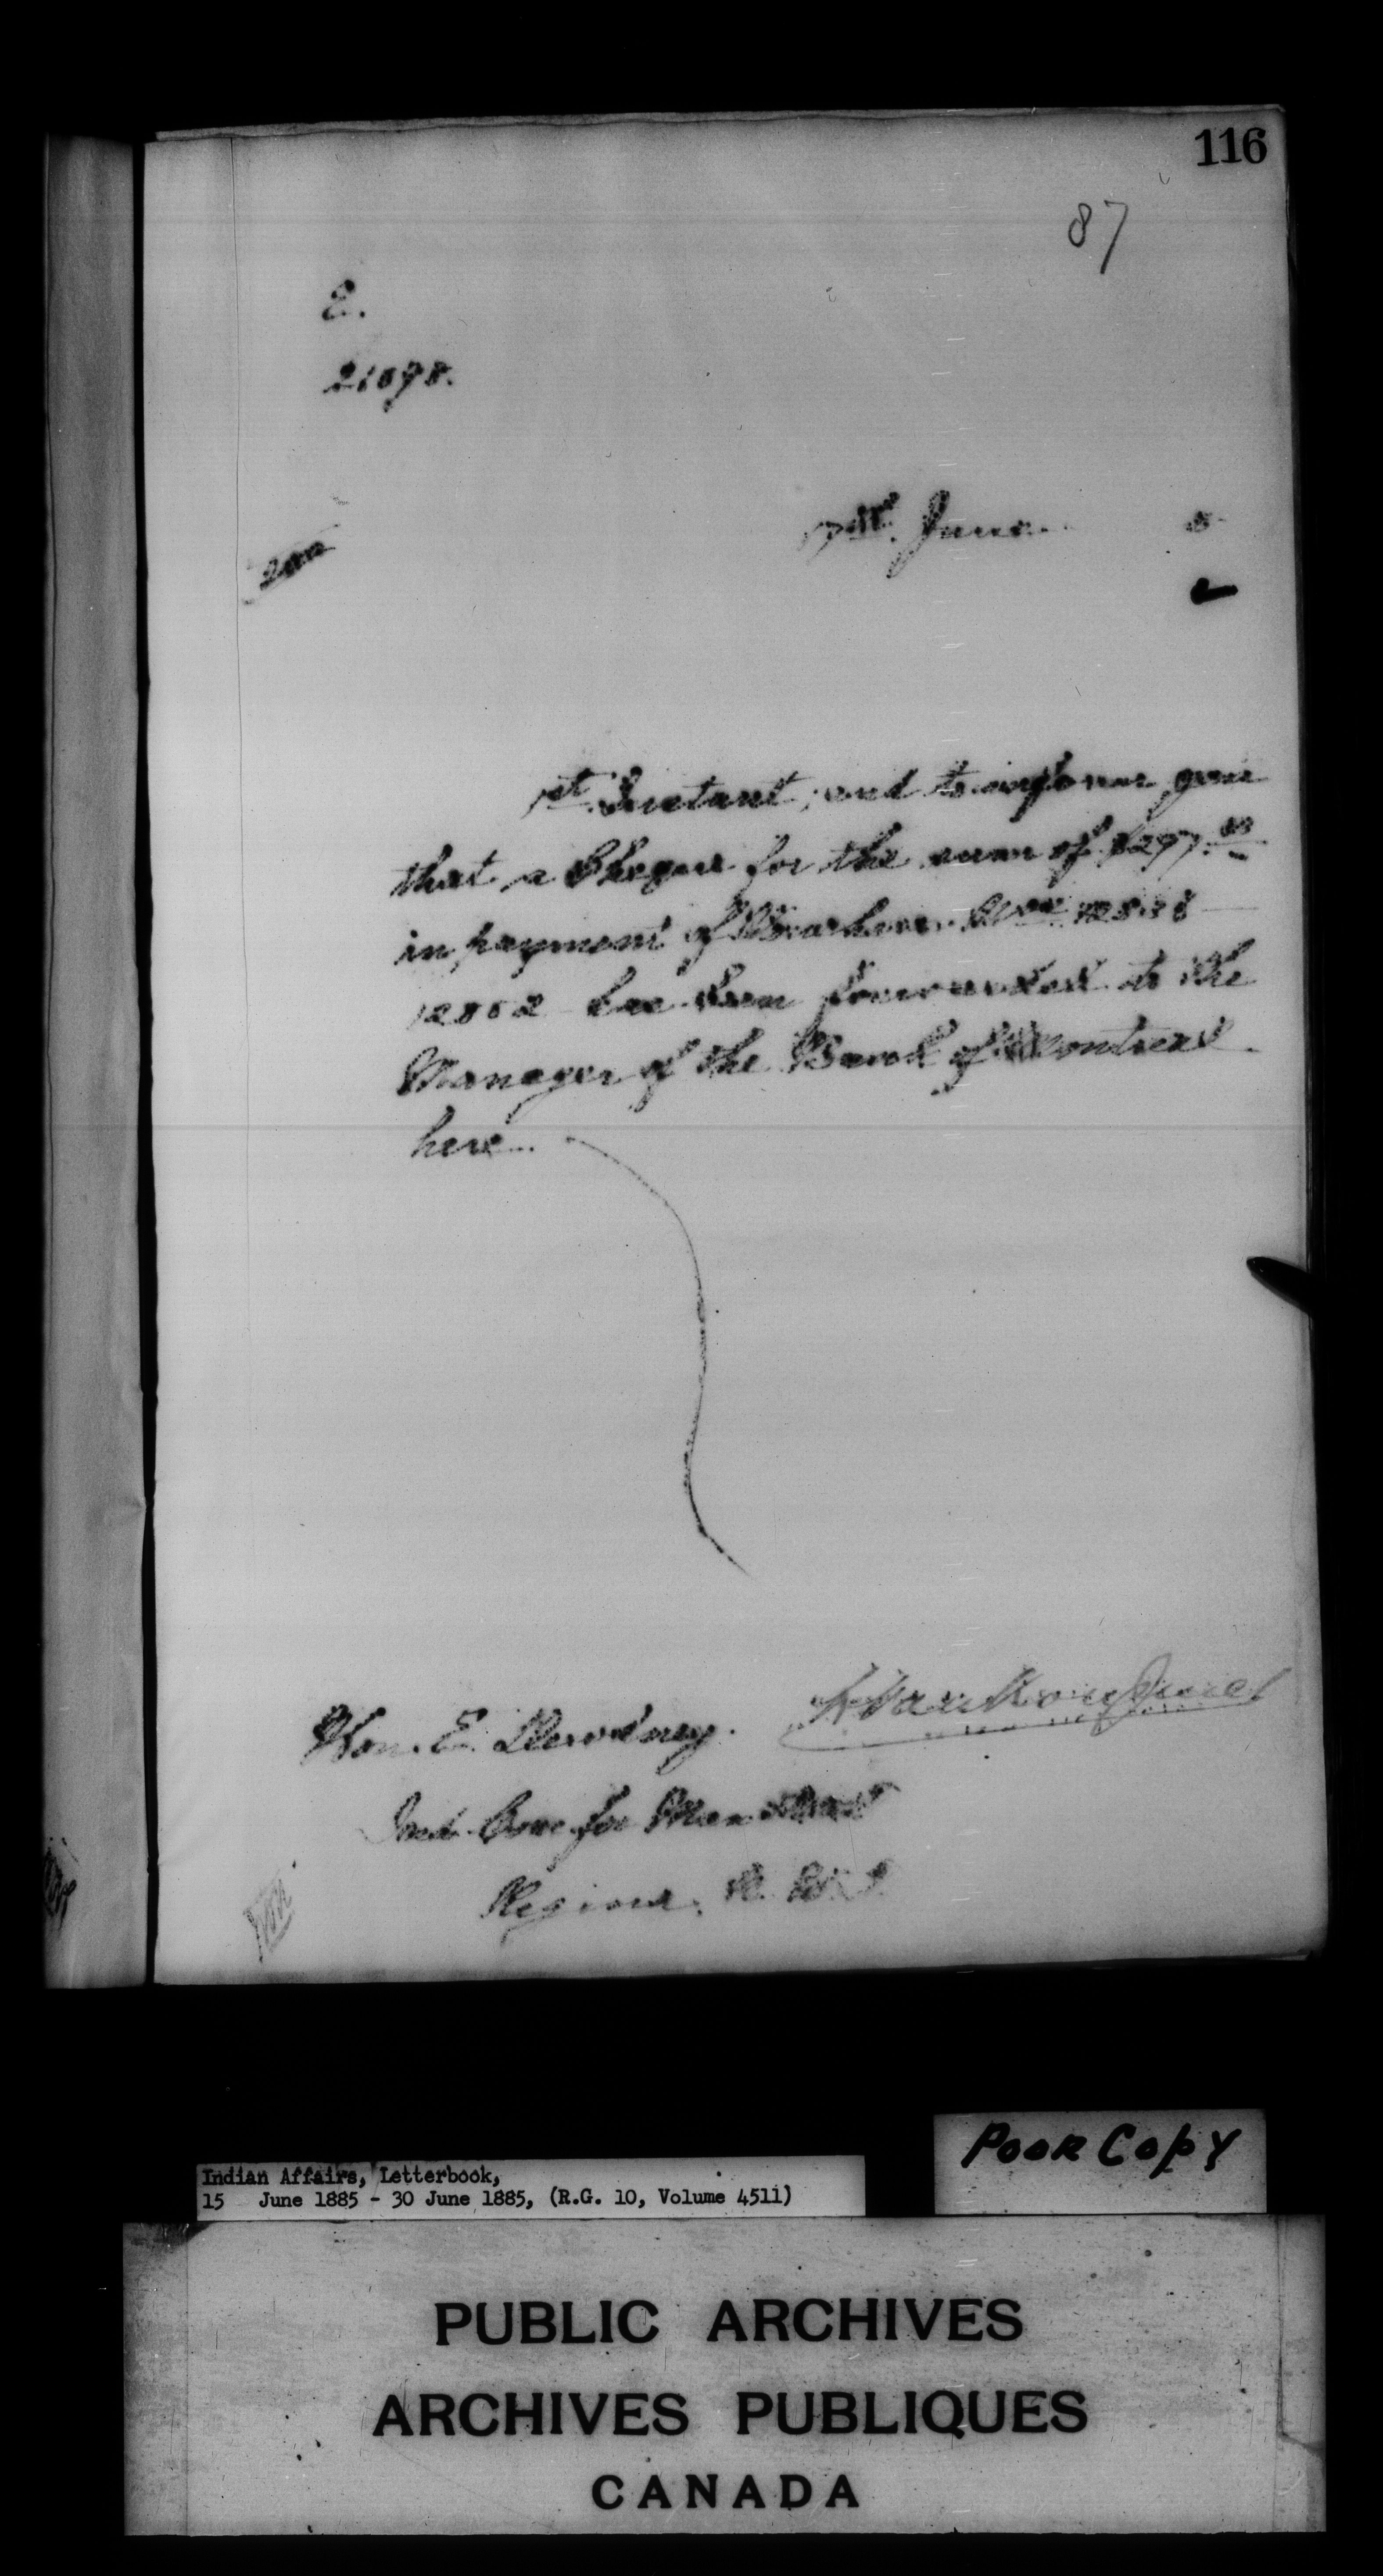 116
87
E.
21098.
17th. June 5
1st. Instant, and to inform you
that a Cheque for the sum of $297.00
in payment of Vouchers Nos.
12802 has been forwarded to the
Manager of the Bank of Montreal
here.
L. Vankoughnet
Hon. E. Dewdney.
Ind. Com. for Man
Regina. N. W. T.
Poor Copy
Indian Affairs, Letterbook,
15 June 1885 - 30 June 1885, (R.G. 10, Volume 4511)
PUBLIC ARCHIVES
ARCHIVES PUBLIQUES
CANADA